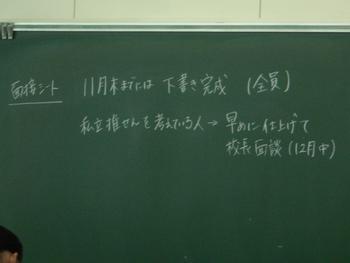 面接シート 11月末までには 下書き完成 (全員)
私立推せんを考えている人→ 早めに仕上げて
校長面談(12月中)